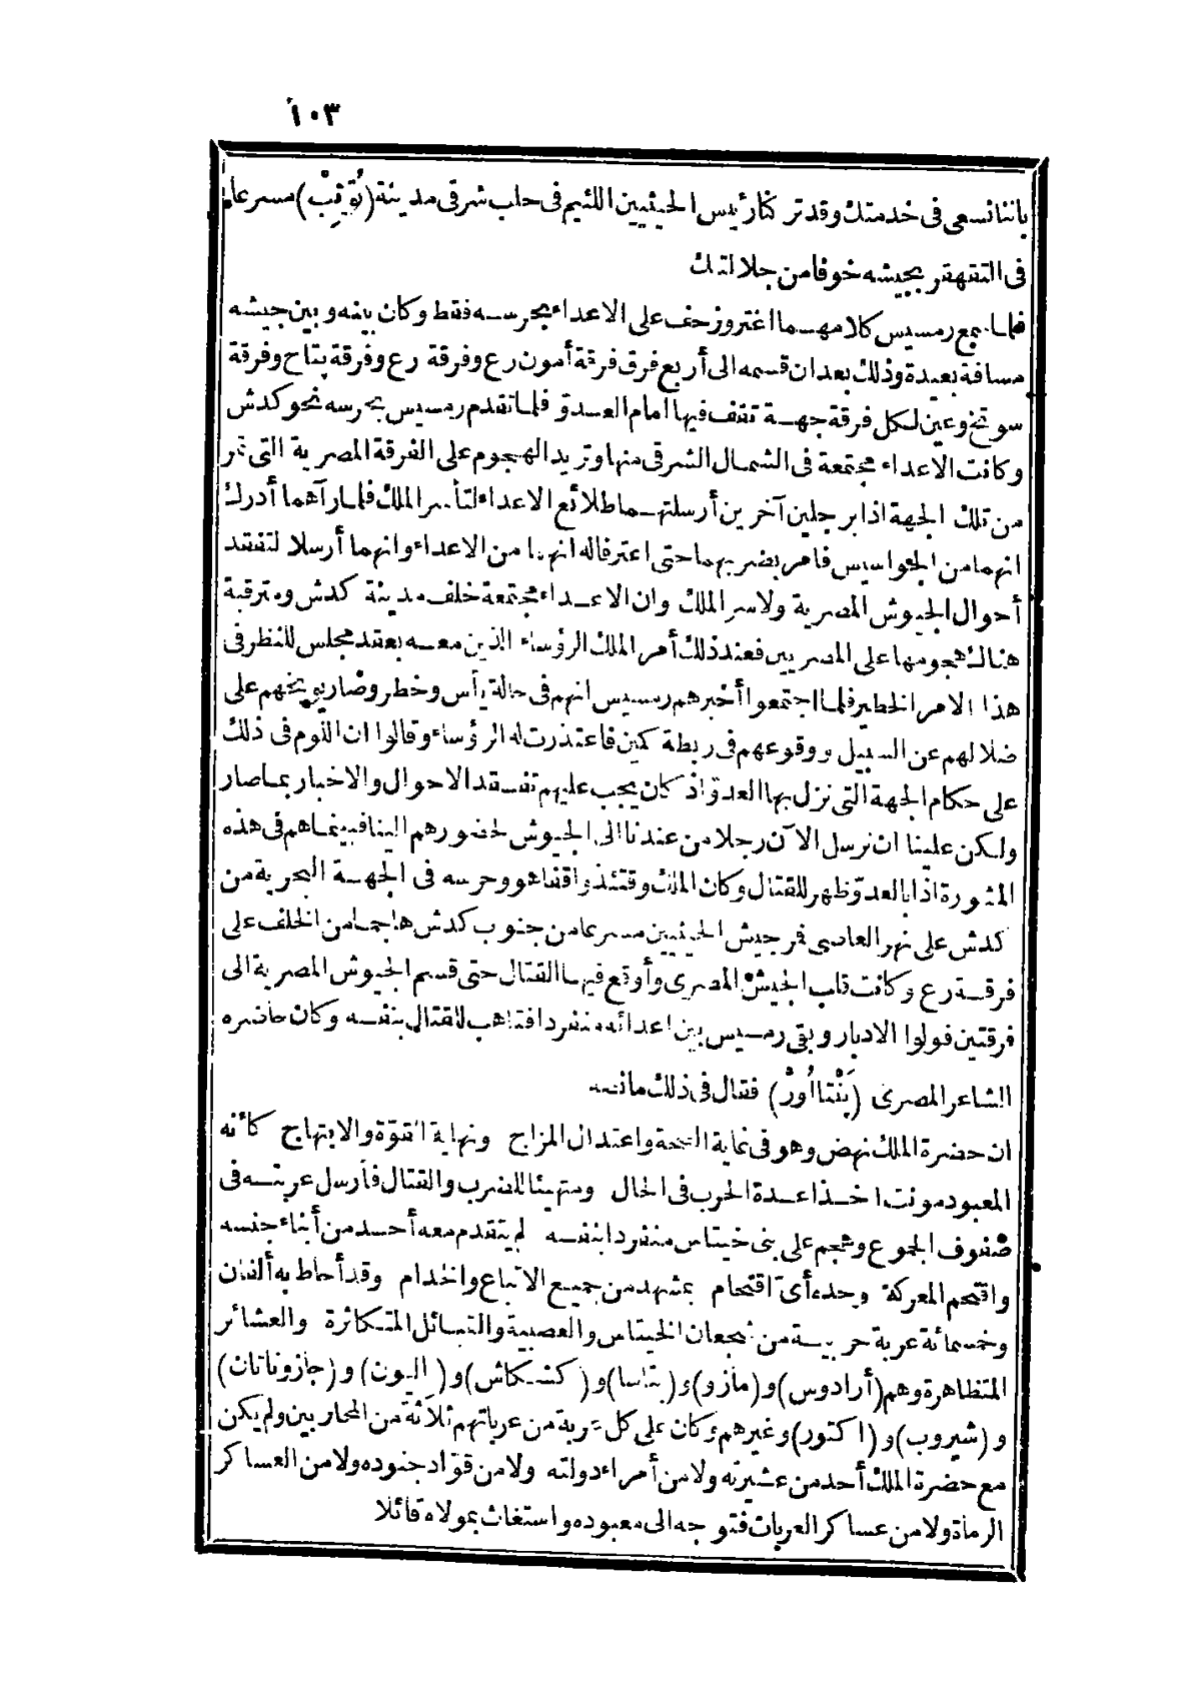 ١٠٣
باننا نسعى فى خدمتك وقد تركنا رئيس الحيثيين اللئيم فى حلب شرقى مدينة (تُونِبْ) مسرعا
فى التقهقر بجيشه خوفا من جلالتك
فلما سمع رمسيس كلامهما اغتر وزحف على الاعداء بحرسه فقط وكان بينه وبين جيشه
مسافة بعيدة وذلك بعد ان قسمه الى أربع فرق فرقة أمون رع وفرقة رع وفرقة پتاح وفرقة
سوتخ وعين لكل فرقة جهة تقف فيها امام العدوّ فلما تقدم رمسيس بحرسه نحو كدش
وكانت الاعداء مجتمعة فى الشمال الشرقى منها وتريد الهجوم على الفرقة المصرية التى تمر
من تلك الجهة اذا برجلين آخرين أرسلتهما طلائع الاعداء لتأسر الملك فلما رآهما أدرك
انهما من الجواسيس فامر بضربهما حتى اعترفا له انهما من الاعداء وانهما أرسلا لتفقد
أحوال الجيوش المصرية ولاسر الملك وان الاعداء مجتمعة خلف مدينة كدش ومترقبة
هناك هجومها على المصريين فعند ذلك أمر الملك الرؤساء الذين معه بعقد مجلس للنظر فى
هذا الامر الخطير فلما اجتمعوا أخبرهم رمسيس انهم فى حالة يأس وخطر وصار يوبخهم على
ضلالهم عن السبيل ووقوعهم فى ربطة كمين فاعتذرت له الرؤساء وقالوا ان اللوم فى ذلك
على حكام الجهة التى نزل بها العدوّ اذ كان يجب عليهم تفقد الاحوال والاخبار بما صار
ولكن علينا ان نرسل الآن رجلا من عندنا الى الجيوش لحضورهم الينا فبينما هم فى هذه
المشورة اذا بالعدوّ ظهر للقتال وكان الملك وقتئذ واقفا هو وحرسه فى الجهة البحرية من
كدش على نهر العاصى فمر جيش الحيثيين مسرعا من جنوب كدش هاجما من الخلف على
فرقة رع وكانت قلب الجيش المصرى وأوقع فيها القتال حتى قسم الجيوش المصرية الى
فرقتين فولوا الادبار وبقى رمسيس بين اعدائه منفردا فتأهب للقتال بنفسه وكان حاضره
الشاعر المصرى (بَنْتَااُورْ) فقال فى ذلك مانصه
ان حضرة الملك نهض وهو فى غاية الصحة واعتدال المزاج ونهاية القوّة والابتهاج كأنه
المعبود مونت اخذا عدة الحرب فى الحال ومتهيئا للضرب والقتال فأرسل عربته فى
صفوف الجموع وهجم على بنى خيتاس منفردا بنفسه لم يتقدم معه أحد من أبناء جنسه
واقتحم المعركة وحده أى اقتحام بمشهد من جميع الاتباع والخدام وقد أحاط به ألفان
وخمسمائة عربة حربية من شجعان الخيتاس والعصبية والقبائل المتكاثرة والعشائر
المتظاهرة وهم (أرادوس) و(مازو) و(بتاسا) و(كشكاش) و(اليون) و(جازوناتان)
و(شيروب) و(اكتور) وغيرهم وكان على كل عربة من عرباتهم ثلاثة من المحاربين ولم يكن
مع حضرة الملك أحد من عشيرته ولا من أمراء دولته ولا من قوّاد جنوده ولا من العساكر
الرماة ولا من عساكر العربات فتوجه الى معبوده واستغاث بمولاه قائلا